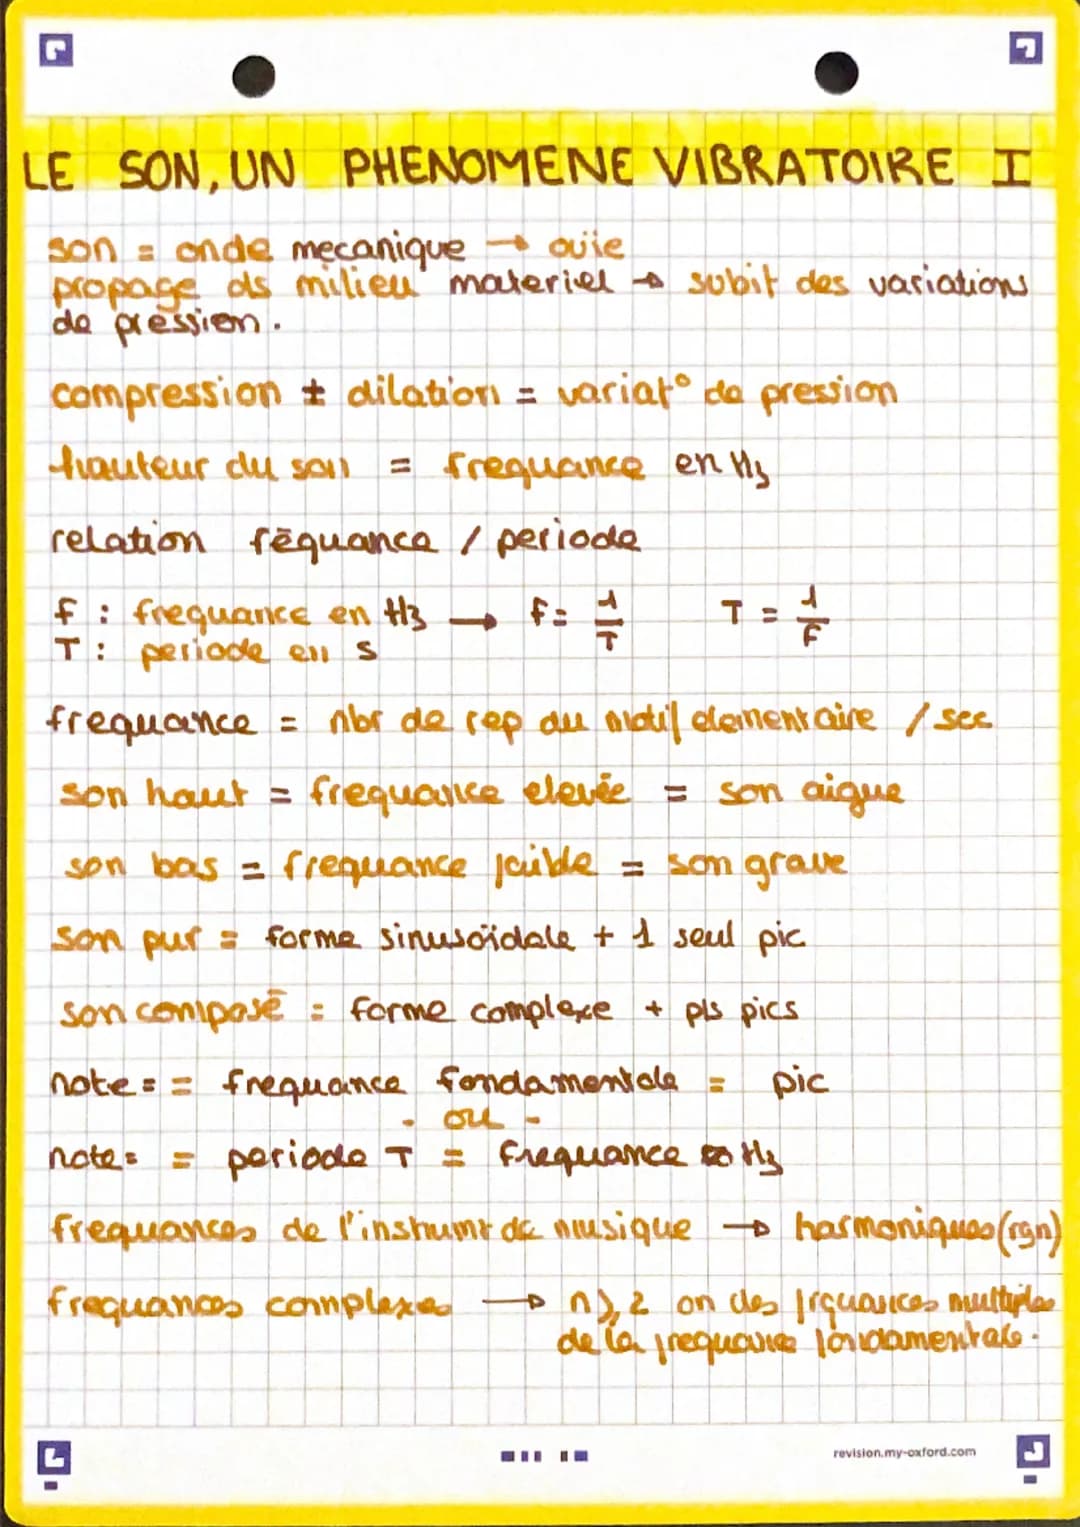 LE SON, UN PHENOMENE VIBRATOIRE I
son = onde mecanique → ouie
propage ds milieu materiel → subit des variations
de pression.
compression ± dilation = variat° de pression
hauteur du son = frequance en Hz
relation féquance / periode
f : frequance en Hz → f = 1/T T = 1/F
T : periode en s
frequance = nbr de rep du motif elementaire / sec
son haut = frequance elevée = son aigue
son bas = frequance faible = son grave
son pur = forme sinusoïdale + 1 seul pic
son composé = forme complexe + pls pics
note = = frequance fondamentale = pic
- ou -
note = = periode T = frequance Hz
frequances de l'instrumt de musique → harmoniques (rgn)
frequances complexes → n⩾2 on des frquances multiples
de la frequance fondamentale.
revision.my-oxford.com